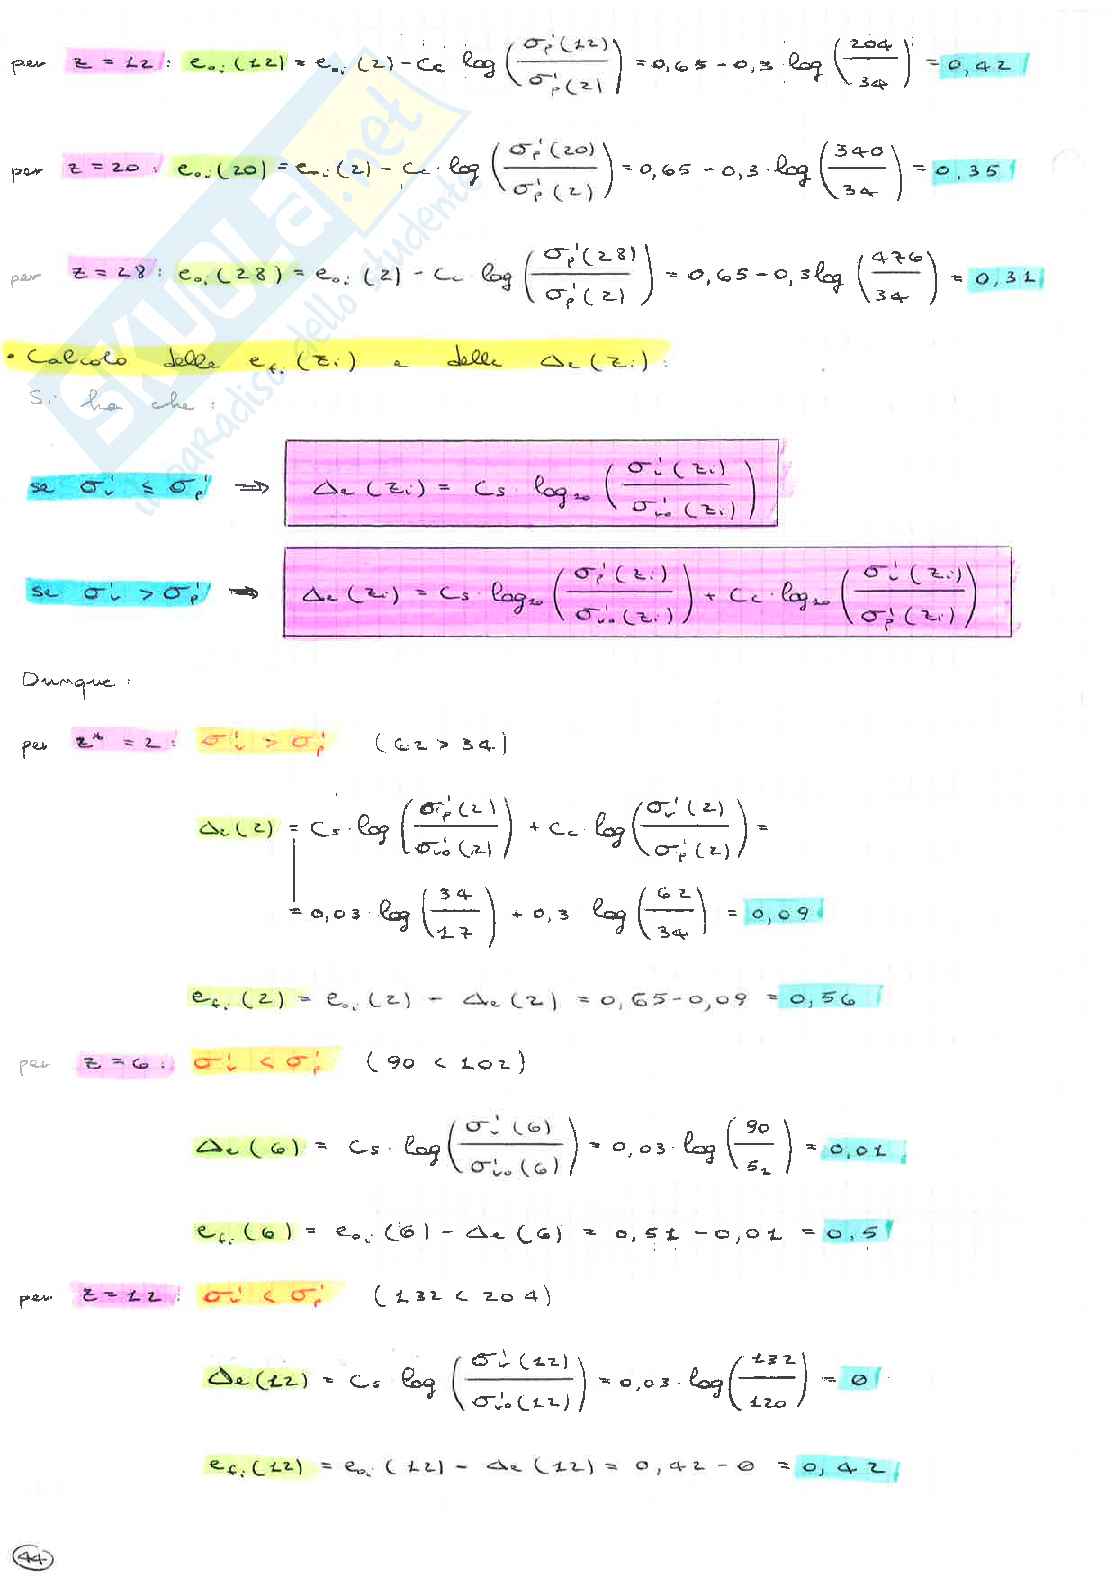 per z = 12 : e₀ᵢ (12) = e₀ᵢ (2) - Cc log (σ'p (12) / σ'p (2)) = 0,65 - 0,3 log (204 / 34) = 0,42
per z = 20 : e₀ᵢ (20) = e₀ᵢ (2) - Cc · log (σ'p (20) / σ'p (2)) = 0,65 - 0,3 · log (340 / 34) = 0,35
per z = 28 : e₀ᵢ (28) = e₀ᵢ (2) - Cc log (σ'p (28) / σ'p (2)) = 0,65 - 0,3 log (476 / 34) = 0,31
SKUOLA.net
il paradiso dello studente
• Calcolo delle ef (zi) e delle Δe (zi) :
Si ha che :
se σ'v ≤ σ'p ⇒ Δe (zi) = Cs · log₁₀ (σ'v (zi) / σ'v₀ (zi))
se σ'v > σ'p ⇒ Δe (zi) = Cs · log₁₀ (σ'p (zi) / σ'v₀ (zi)) + Cc · log₁₀ (σ'v (zi) / σ'p (zi))
Dunque :
per z* = 2 : σ'v > σ'p (62 > 34)
Δe (2) = Cs · log (σ'p (2) / σ'v₀ (2)) + Cc · log (σ'v (2) / σ'p (2)) =
= 0,03 · log (34 / 17) + 0,3 log (62 / 34) = 0,09
efᵢ (2) = e₀ᵢ (2) - Δe (2) = 0,65 - 0,09 = 0,56
per z = 6 : σ'v < σ'p (90 < 102)
Δe (6) = Cs · log (σ'v (6) / σ'v₀ (6)) = 0,03 · log (90 / 52) = 0,01
efᵢ (6) = e₀ᵢ (6) - Δe (6) = 0,51 - 0,01 = 0,5
per z = 12 : σ'v < σ'p (132 < 204)
Δe (12) = Cs log (σ'v (12) / σ'v₀ (12)) = 0,03 · log (132 / 120) = 0
efᵢ (12) = e₀ᵢ (12) - Δe (12) = 0,42 - 0 = 0,42
44